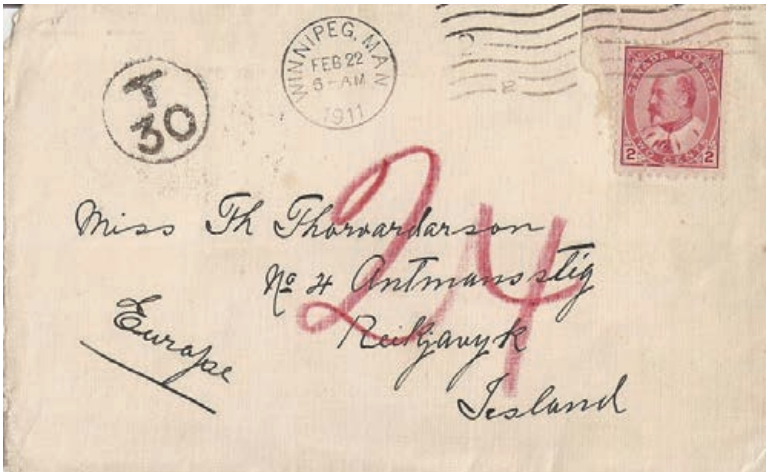 WINNIPEG, MAN
FEB 22
6-AM
1911
T
30
CANADA POSTAGE
2 TWO CENTS 2
24
Miss Th Thorvardarson
No 4 Antmansstig
Reikjavyk
Iesland
Europe